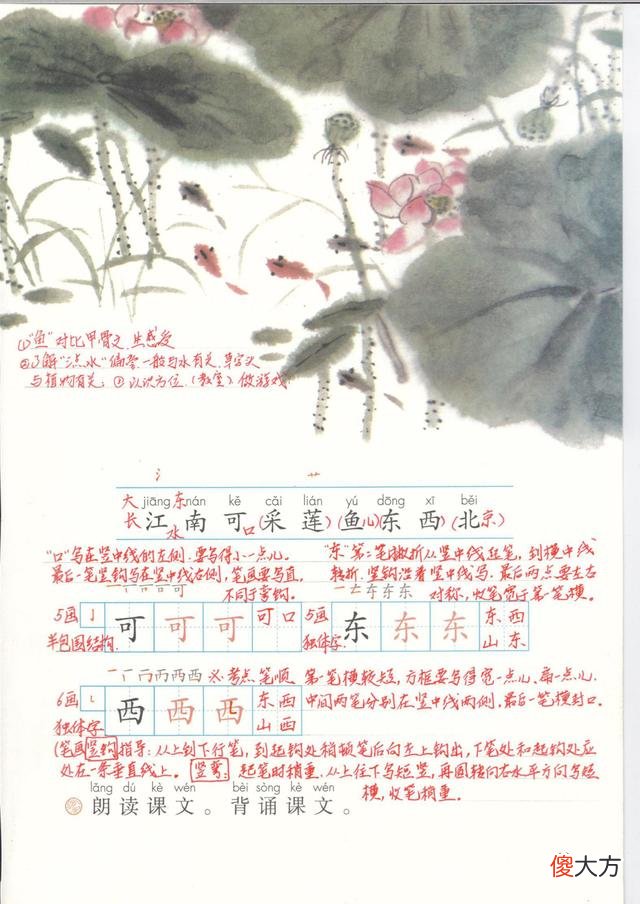 ①"鱼"对比甲骨文.生感受
②了解"三点水"偏旁一般与水有关.草字头
与植物有关; ③认识方位.(教室)做游戏.
氵 艹
大 jiāng 东 nán kě cǎi lián yú dōng xī běi
长江 南 可 (采 莲) (鱼儿) 东 西) (北京)
水 口
"口"写在竖中线的左侧.要写得小一点儿.
最后一笔竖钩写在竖中线右侧,笔画要写直,
不同于弯钩。
"东"第二笔撇折从竖中线起笔,到横中线
转折.竖钩沿着竖中线写.最后两点要左右
对称,收笔宽于第一笔横。
5画 可 可 可 可 口
半包围结构.
5画 东 东 东 东 西
独体字. 山 东
必考点.笔顺 第一笔横较短,方框要写得宽一点儿.扁一点儿.
中间两笔分别在竖中线两侧.最后一笔横封口.
6画 西 西 西 东 西
独体字 山 西
(笔画竖钩指导:从上到下行笔,到起钩处稍顿笔后向左上钩出,下笔处和起钩处应
处在一条垂直线上。 竖弯: 起笔时稍重.从上往下写短竖,再圆转向右水平方向写短
横,收笔稍重.
lǎng dú kè wén bèi sòng kè wén
朗读课文。背诵课文。
傻大方